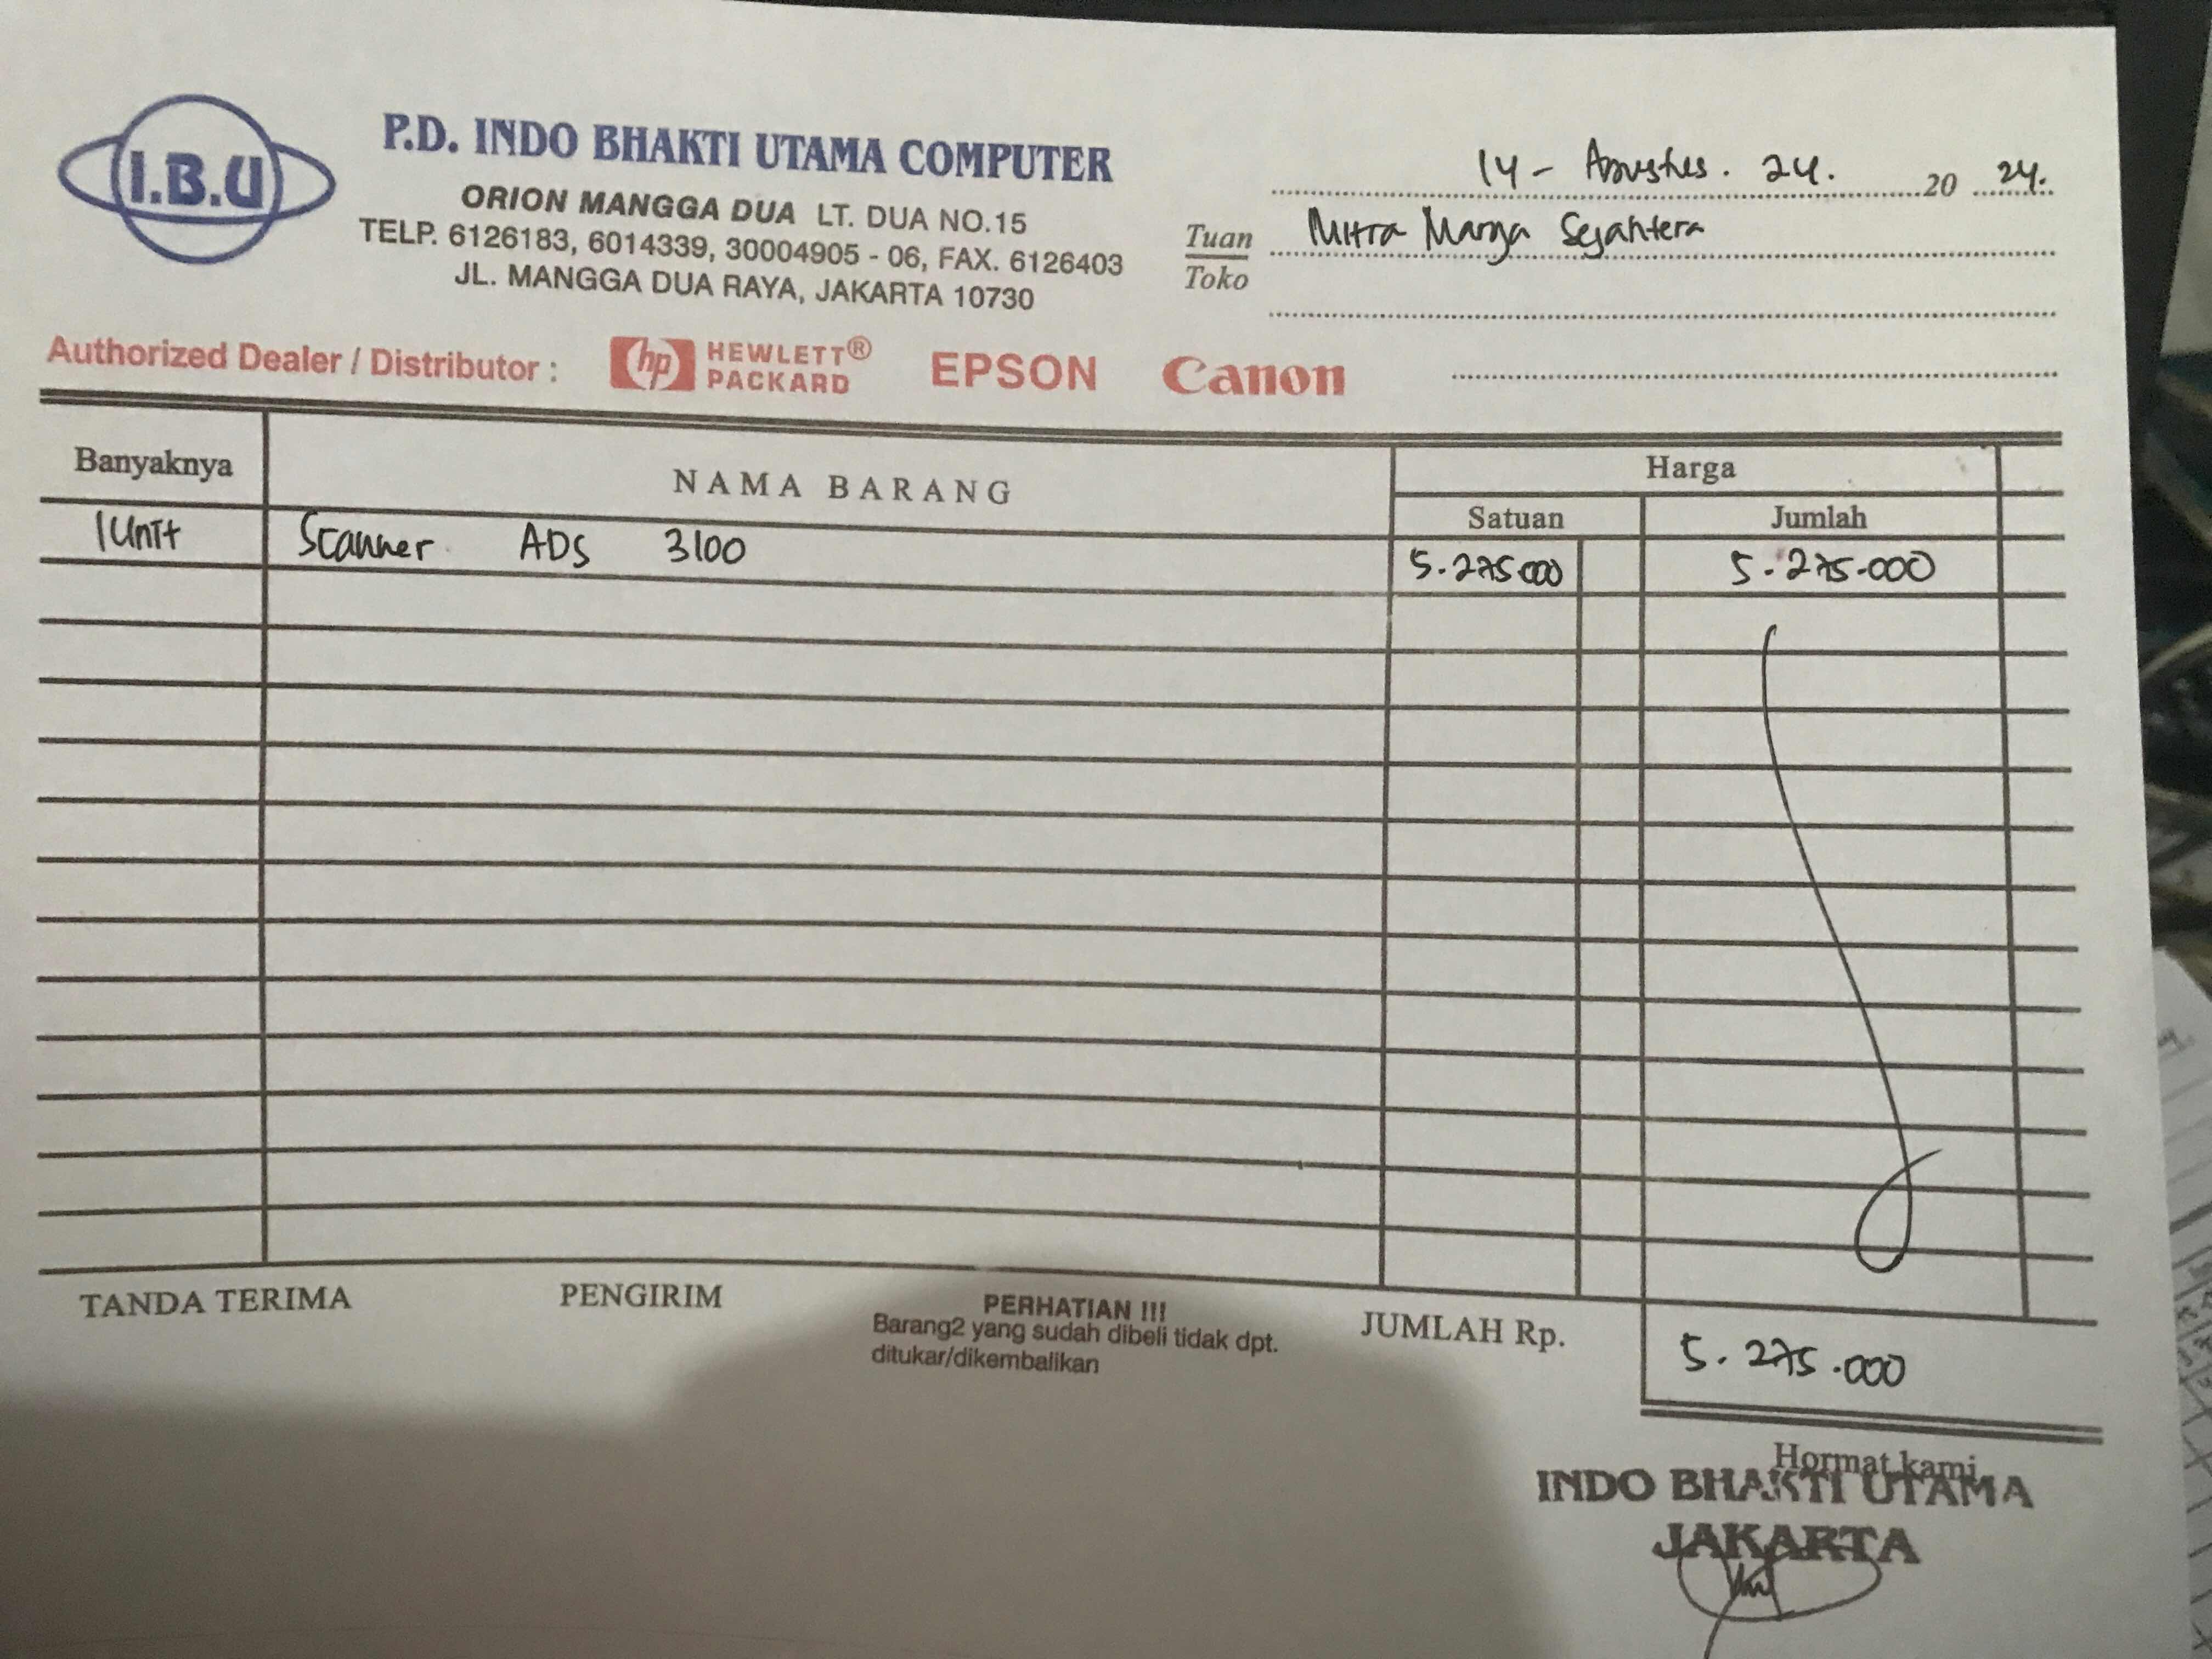 I.B.U
P.D. INDO BHAKTI UTAMA COMPUTER
ORION MANGGA DUA LT. DUA NO.15
TELP. 6126183, 6014339, 30004905 - 06, FAX. 6126403
JL. MANGGA DUA RAYA, JAKARTA 10730
14 - Agustus. 24. 20 24.
Tuan Mitra Marga Sejahtera
Toko
Authorized Dealer / Distributor : hp HEWLETT® PACKARD EPSON Canon
Banyaknya NAMA BARANG Harga
Satuan Jumlah
1 Unit Scanner ADS 3100 5.275.000 5.275.000
TANDA TERIMA PENGIRIM PERHATIAN !!! JUMLAH Rp. 5.275.000
Barang2 yang sudah dibeli tidak dpt.
ditukar/dikembalikan
Hormat kami,
INDO BHAKTI UTAMA
JAKARTA